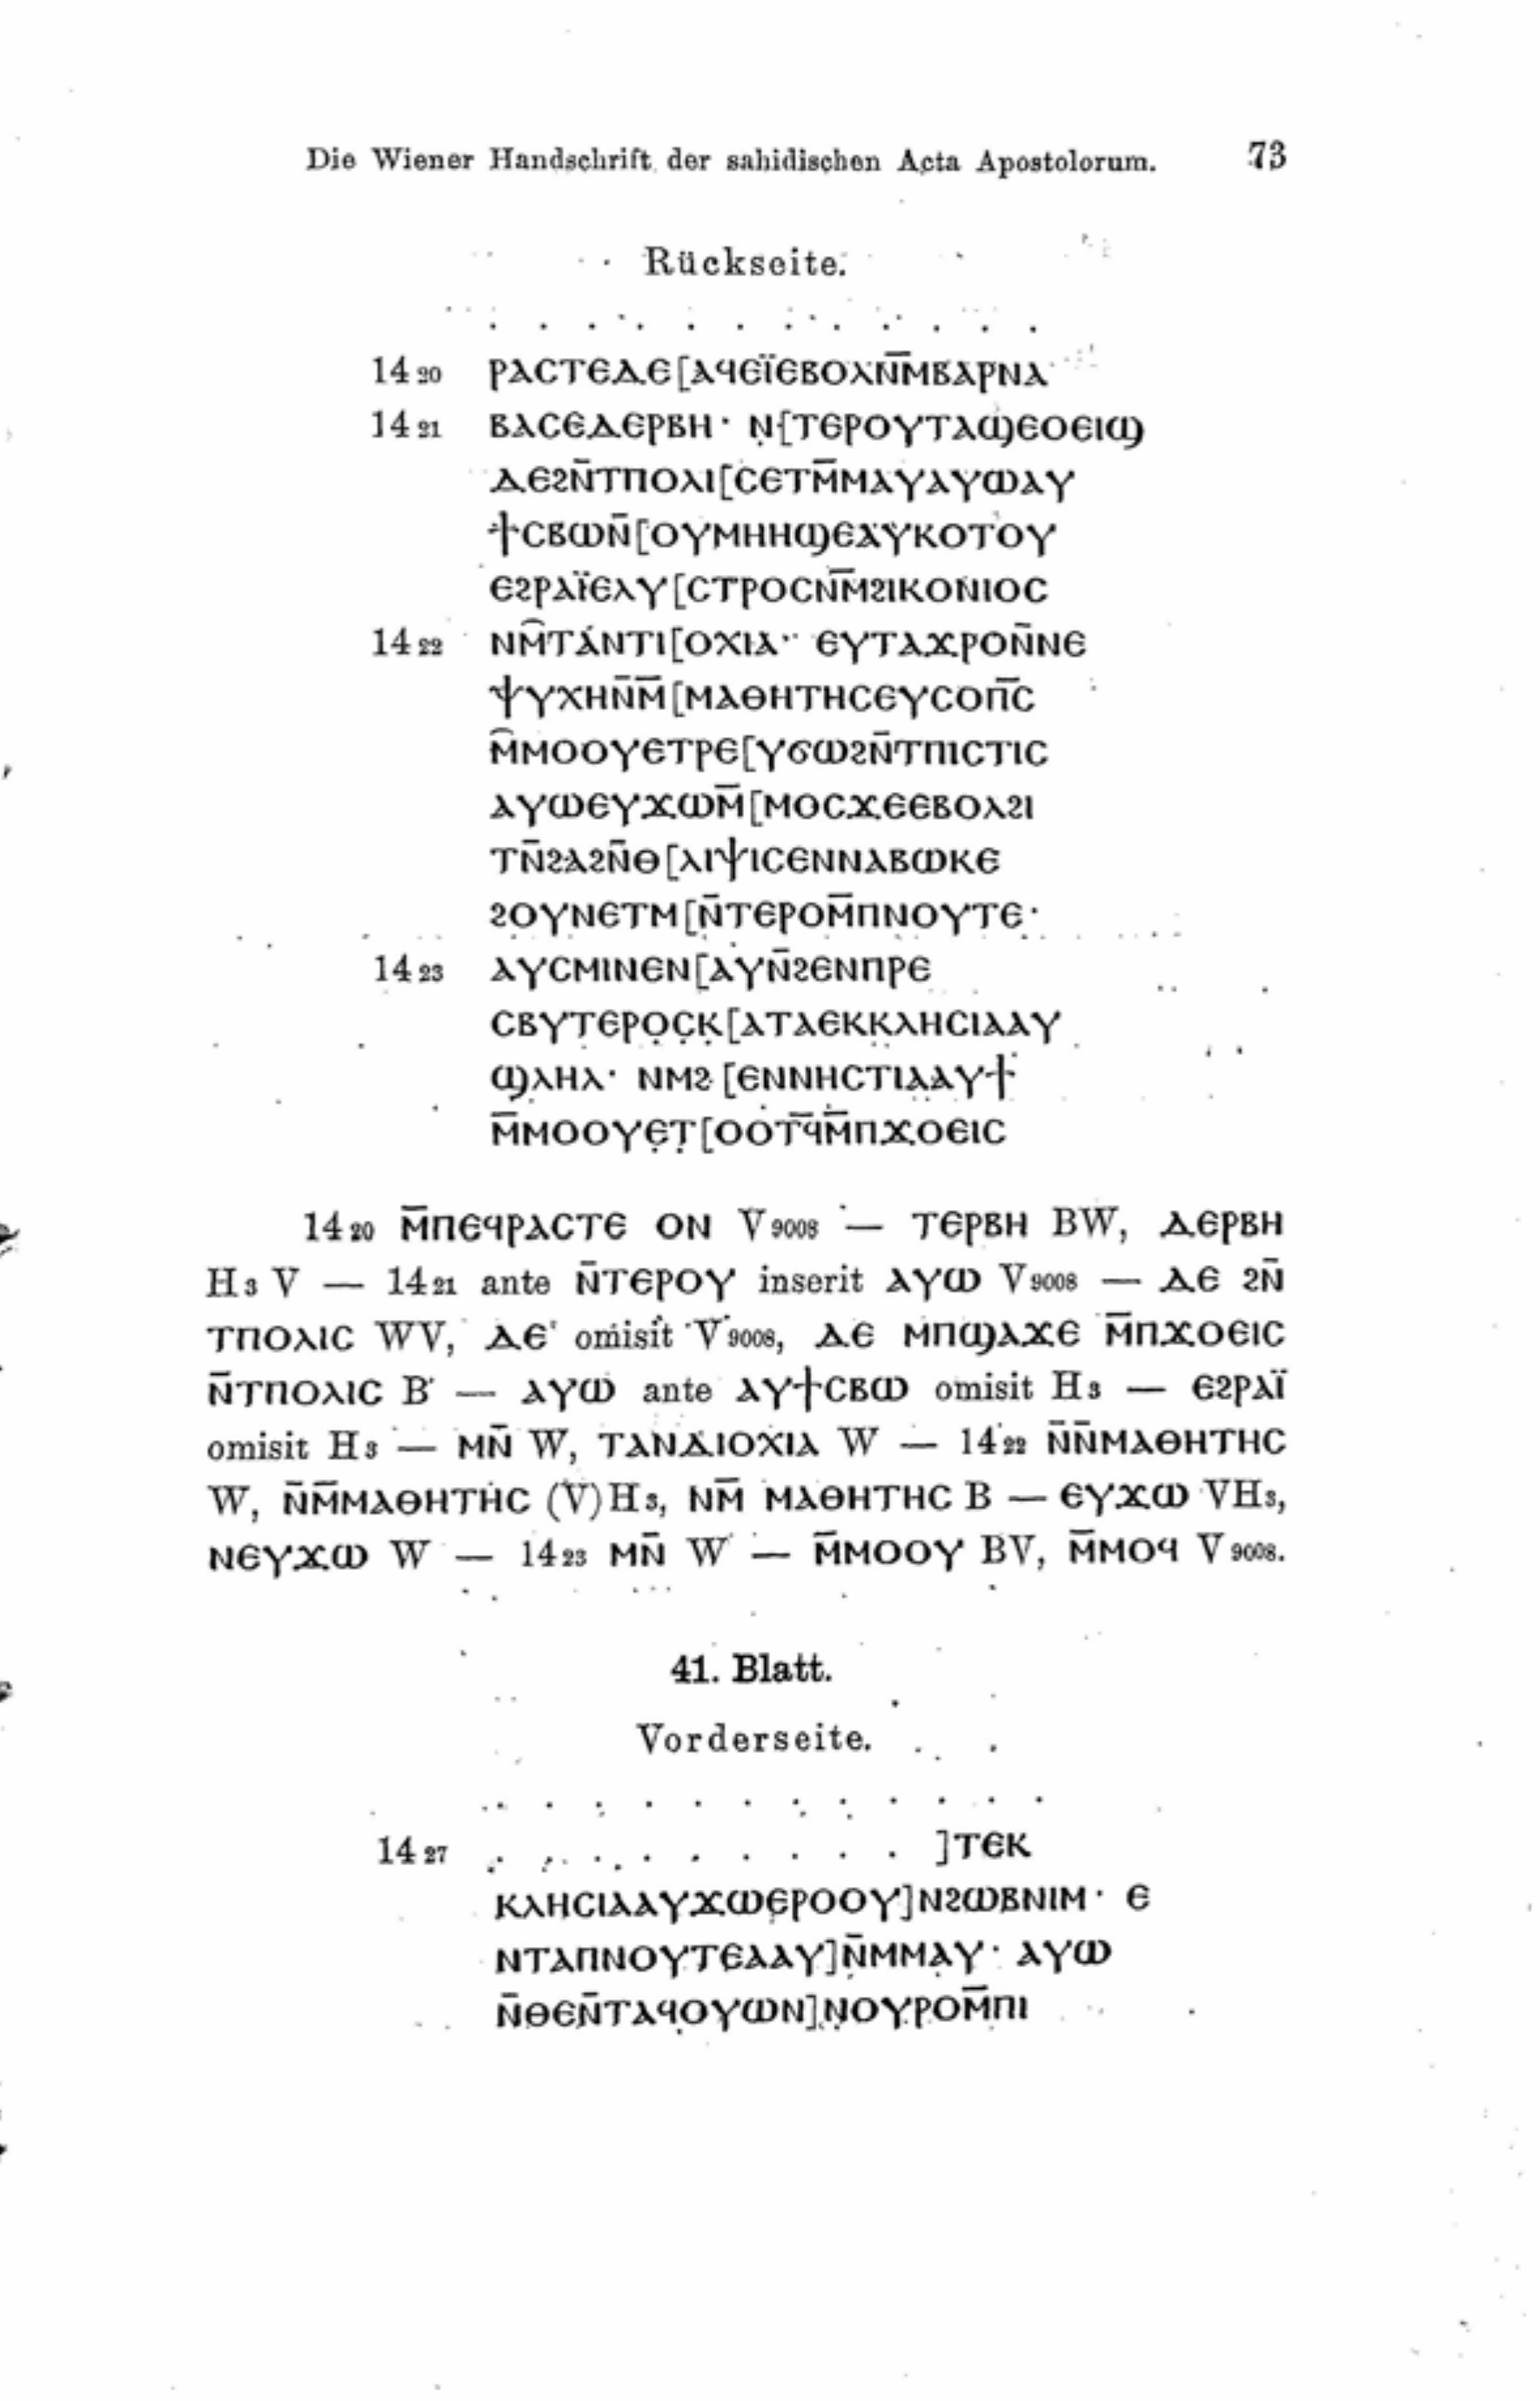 Die Wiener Handschrift der sahidischen Acta Apostolorum. 73
Rückseite.
. . . . . . . . . . . .
14 20 ⲣⲁⲥⲧⲉⲇⲉ[ⲁϥⲉⲓ̈ⲉⲃⲟⲗⲛ̅ⲙ̅ⲃⲁⲣⲛⲁ
14 21 ⲃⲁⲥⲉⲇⲉⲣⲃⲏ· ⲛ̣[ⲧⲉⲣⲟⲩⲧⲁϣⲉⲟⲉⲓϣ
ⲇⲉϩⲛ̅ⲧⲡⲟⲗⲓ[ⲥⲉⲧⲙ̅ⲙⲁⲩⲁⲩⲱⲁⲩ
ϯⲥⲃⲱⲛ̅[ⲟⲩⲙⲏⲏϣⲉⲁⲩⲕⲟⲧⲟⲩ
ⲉϩⲣⲁⲓ̈ⲉⲗⲩ[ⲥⲧⲣⲟⲥⲛ̅ⲙ̅ϩⲓⲕⲟⲛⲓⲟⲥ
14 22 ⲛⲙ̑ⲧⲁⲛⲧⲓ[ⲟⲭⲓⲁ· ⲉⲩⲧⲁϫⲣⲟⲛ̅ⲛⲉ
ⲯⲩⲭⲏⲛ̅ⲙ̅[ⲙⲁⲑⲏⲧⲏⲥⲉⲩⲥⲟⲡ̅ⲥ̅
ⲙ̑ⲙⲟⲟⲩⲉⲧⲣⲉ[ⲩϭⲱϩⲛ̅ⲧⲡⲓⲥⲧⲓⲥ
ⲁⲩⲱⲉⲩϫⲱⲙ̅[ⲙⲟⲥϫⲉⲉⲃⲟⲗϩⲓ
ⲧⲛ̅ϩⲁϩⲛ̅ⲑ[ⲗⲓⲯⲓⲥⲉⲛⲛⲁⲃⲱⲕⲉ
ϩⲟⲩⲛⲉⲧⲙ[ⲛ̅ⲧⲉⲣⲟⲙ̅ⲡⲛⲟⲩⲧⲉ·
14 23 ⲁⲩⲥⲙⲓⲛⲉⲛ[ⲁⲩⲛ̅ϩⲉⲛⲡⲣⲉ
ⲥⲃⲩⲧⲉⲣⲟ̣ⲥ̣ⲕ̣[ⲁⲧⲁⲉⲕⲕⲗⲏⲥⲓⲁⲁⲩ
ϣⲗⲏⲗ· ⲛⲙϩ[ⲉⲛⲛⲏⲥⲧⲓⲁⲁⲩϯ
ⲙ̅ⲙⲟⲟⲩⲉ̣ⲧ̣[ⲟⲟⲧ̅ϥ̅ⲙ̅ⲡϫⲟⲉⲓⲥ
14 20 ⲙ̅ⲡⲉϥⲣⲁⲥⲧⲉ ⲟⲛ V 9008 — ⲧⲉⲣⲃⲏ BW, ⲇⲉⲣⲃⲏ
H3 V — 14 21 ante ⲛ̅ⲧⲉⲣⲟⲩ inserit ⲁⲩⲱ V 9008 — ⲇⲉ ϩⲛ̅
ⲧⲡⲟⲗⲓⲥ WV, ⲇⲉ omisit V 9008, ⲇⲉ ⲙⲡϣⲁϫⲉ ⲙ̅ⲡϫⲟⲉⲓⲥ
ⲛ̅ⲧⲡⲟⲗⲓⲥ B — ⲁⲩⲱ ante ⲁⲩϯⲥⲃⲱ omisit H3 — ⲉϩⲣⲁⲓ̈
omisit H3 — ⲙⲛ̅ W, ⲧⲁⲛⲇⲓⲟⲭⲓⲁ W — 14 22 ⲛ̅ⲛ̅ⲙⲁⲑⲏⲧⲏⲥ
W, ⲛ̅ⲙ̅ⲙⲁⲑⲏⲧⲏⲥ (V)H3, ⲛⲙ̅ ⲙⲁⲑⲏⲧⲏⲥ B — ⲉⲩϫⲱ VH3,
ⲛⲉⲩϫⲱ W — 14 23 ⲙⲛ̅ W — ⲙ̅ⲙⲟⲟⲩ BV, ⲙ̅ⲙⲟϥ V 9008.
41. Blatt.
Vorderseite.
. . . . . . . . . . . .
14 27 . . . . . . . . . ]ⲧⲉⲕ
ⲕⲗⲏⲥⲓⲁⲁⲩϫⲱⲉⲣⲟⲟⲩ]ⲛϩⲱⲃⲛⲓⲙ· ⲉ
ⲛⲧⲁⲡⲛⲟⲩⲧⲉⲁⲁⲩ]ⲛ̅ⲙⲙⲁⲩ· ⲁⲩⲱ
ⲛ̅ⲑⲉⲛ̅ⲧⲁϥⲟⲩⲱⲛ]ⲛ̣ⲟⲩⲣⲟⲙ̅ⲡⲓ